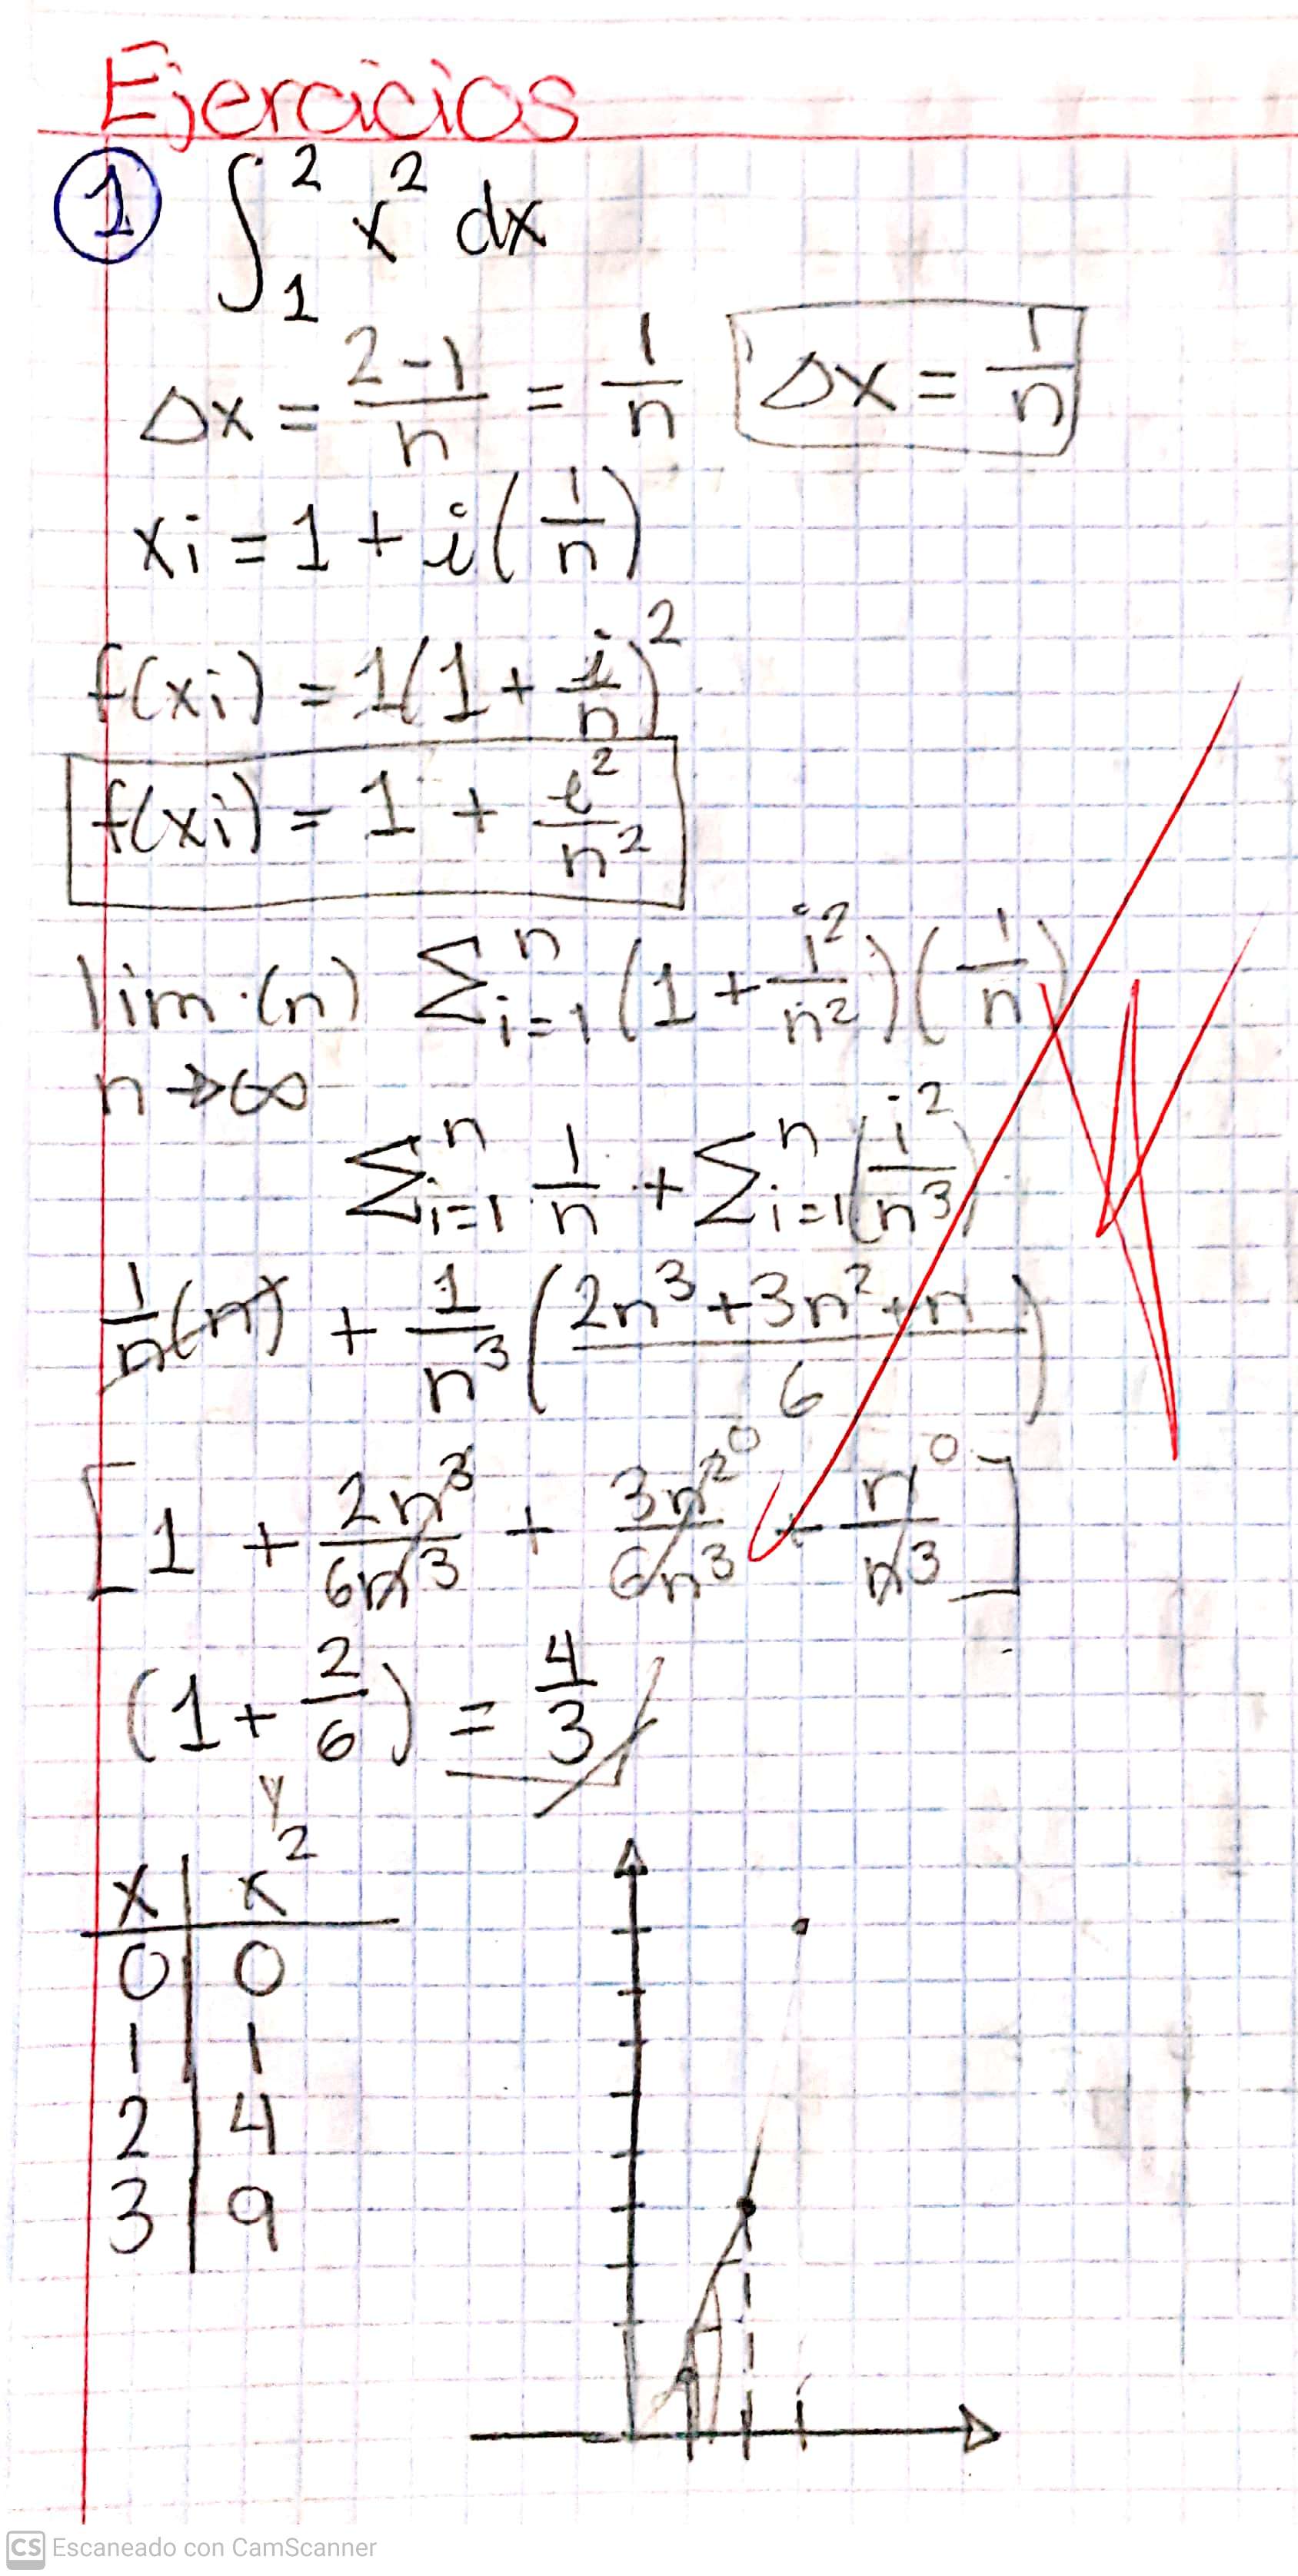 Ejercicios
1 ∫₁² x² dx
Δx = (2-1)/n = 1/n Δx = 1/n
xi = 1 + i(1/n)
f(xi) = 1(1 + i/n)²
f(xi) = 1 + i²/n²
lim (n) Σⁿᵢ₌₁ (1 + i²/n²)(1/n)
n→∞
Σⁿᵢ₌₁ 1/n + Σⁿᵢ₌₁ (i²/n³)
1/n (n) + 1/n³ ((2n³+3n²+n)/6)
[1 + 2n³/6n³ + 3n²/6n³ ⁰ + n/n³ ⁰]
(1 + 2/6) = 4/3
y
x | x²
0 | 0
1 | 1
2 | 4
3 | 9
CS Escaneado con CamScanner